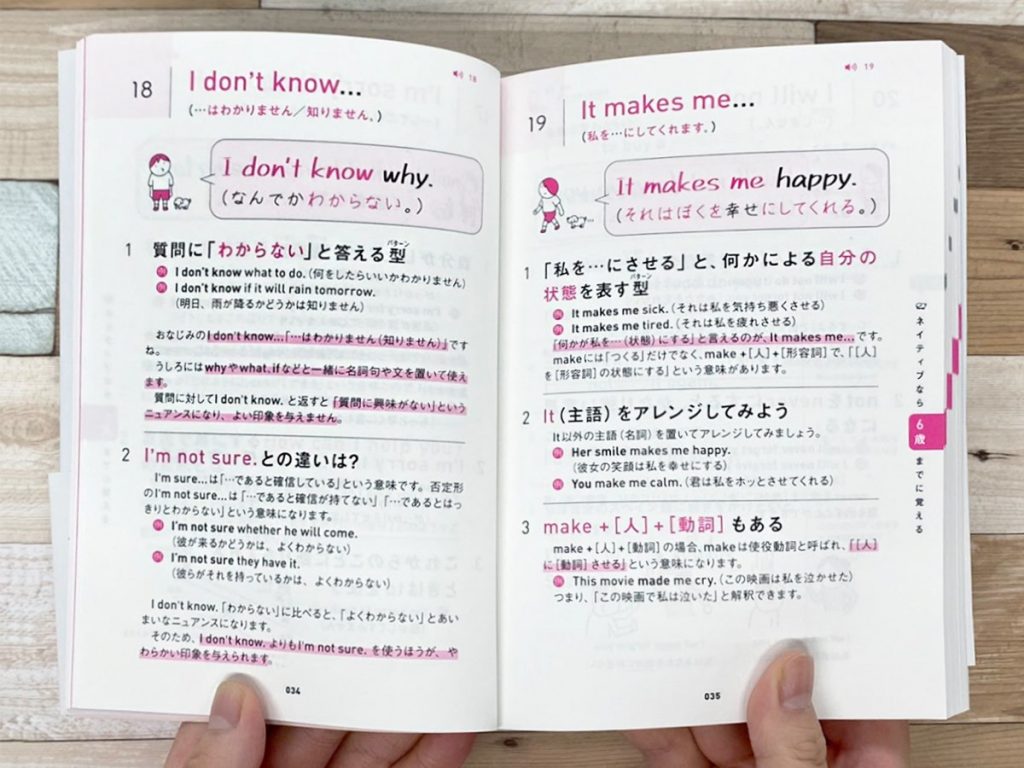 18
I don't know...
(…はわかりません／知りません。)
18
I don't know why.
(なんでかわからない。)
1 質問に「わからない」と答える型
パターン
I don't know what to do. (何をしたらいいかわかりません)
I don't know if it will rain tomorrow.
(明日、雨が降るかどうかは知りません)
おなじみのI don't know...「…はわかりません(知りません)」です
ね。
うしろにはwhyやwhat、ifなどと一緒に名詞句や文を置いて使え
ます。
質問に対してI don't know. と返すと「質問に興味がない」という
ニュアンスになり、よい印象を与えません。
2 I'm not sure. との違いは?
I'm sure...は「…であると確信している」という意味です。否定形
のI'm not sure...は「…であると確信が持てない」「…であるとはっ
きりとわからない」という意味になります。
I'm not sure whether he will come.
(彼が来るかどうかは、よくわからない)
I'm not sure they have it.
(彼らがそれを持っているかは、よくわからない)
I don't know.「わからない」に比べると、「よくわからない」とあい
まいなニュアンスになります。
そのため、I don't know. よりもI'm not sure. を使うほうが、や
わらかい印象を与えられます。
034
19
19
It makes me...
(私を…にしてくれます。)
It makes me happy.
(それはぼくを幸せにしてくれる。)
1 「私を…にさせる」と、何かによる自分の
状態を表す型
パターン
It makes me sick. (それは私を気持ち悪くさせる)
It makes me tired. (それは私を疲れさせる)
「何かが私を…(状態)にする」と言えるのが、It makes me...です。
makeには「つくる」だけでなく、make+[人]+[形容詞]で、「[人]
を[形容詞]の状態にする」という意味があります。
2 It(主語)をアレンジしてみよう
It以外の主語(名詞)を置いてアレンジしてみましょう。
Her smile makes me happy.
(彼女の笑顔は私を幸せにする)
You make me calm. (君は私をホッとさせてくれる)
3 make +[人]+[動詞]もある
make+[人]+[動詞]の場合、makeは使役動詞と呼ばれ、「[人]
に[動詞]させる」という意味になります。
This movie made me cry. (この映画は私を泣かせた)
つまり、「この映画で私は泣いた」と解釈できます。
035
ネイティブなら6歳までに覚える